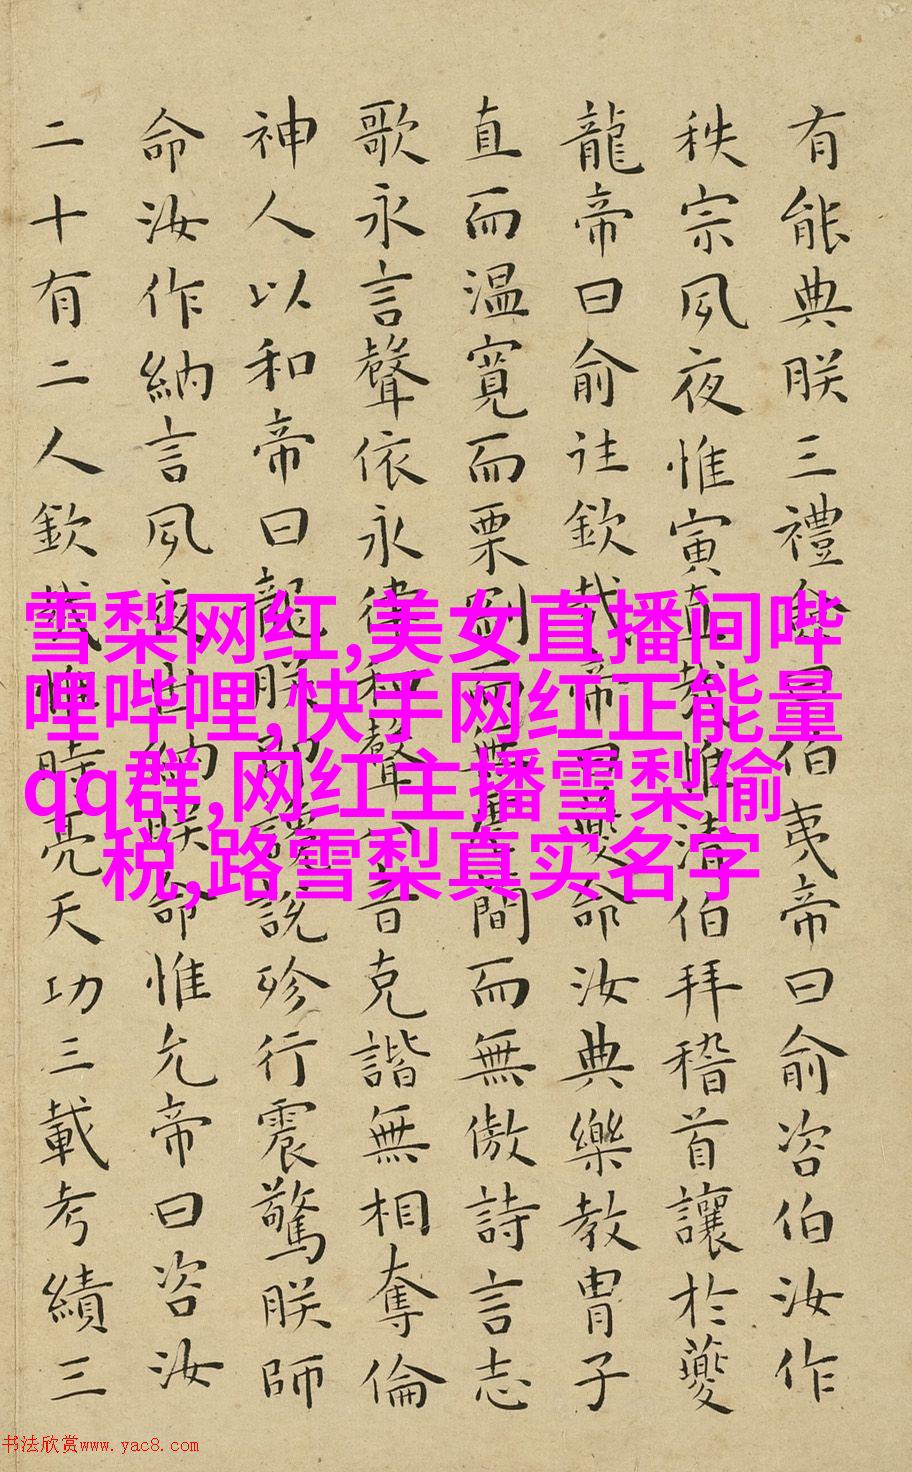 有能典朕三禮僉曰伯夷帝曰俞咨伯汝作
秩宗夙夜惟寅直哉惟清伯拜稽首讓於夔
龍帝曰俞往欽哉帝曰夔命汝典樂教胄子
直而温寛而栗剛而無虐簡而無傲詩言志
歌永言聲依永律和聲八音克諧無相奪倫
神人以和帝曰龍朕堲讒說殄行震驚朕師
命汝作納言夙夜出納朕命惟允帝曰咨汝
二十有二人欽哉惟時亮天功三載考績三
雪梨网红,美女直播间哔
哩哔哩,快手网红正能量
qq群,网红主播雪梨偷
税,路雪梨真实名字
书法欣赏www.yac8.com